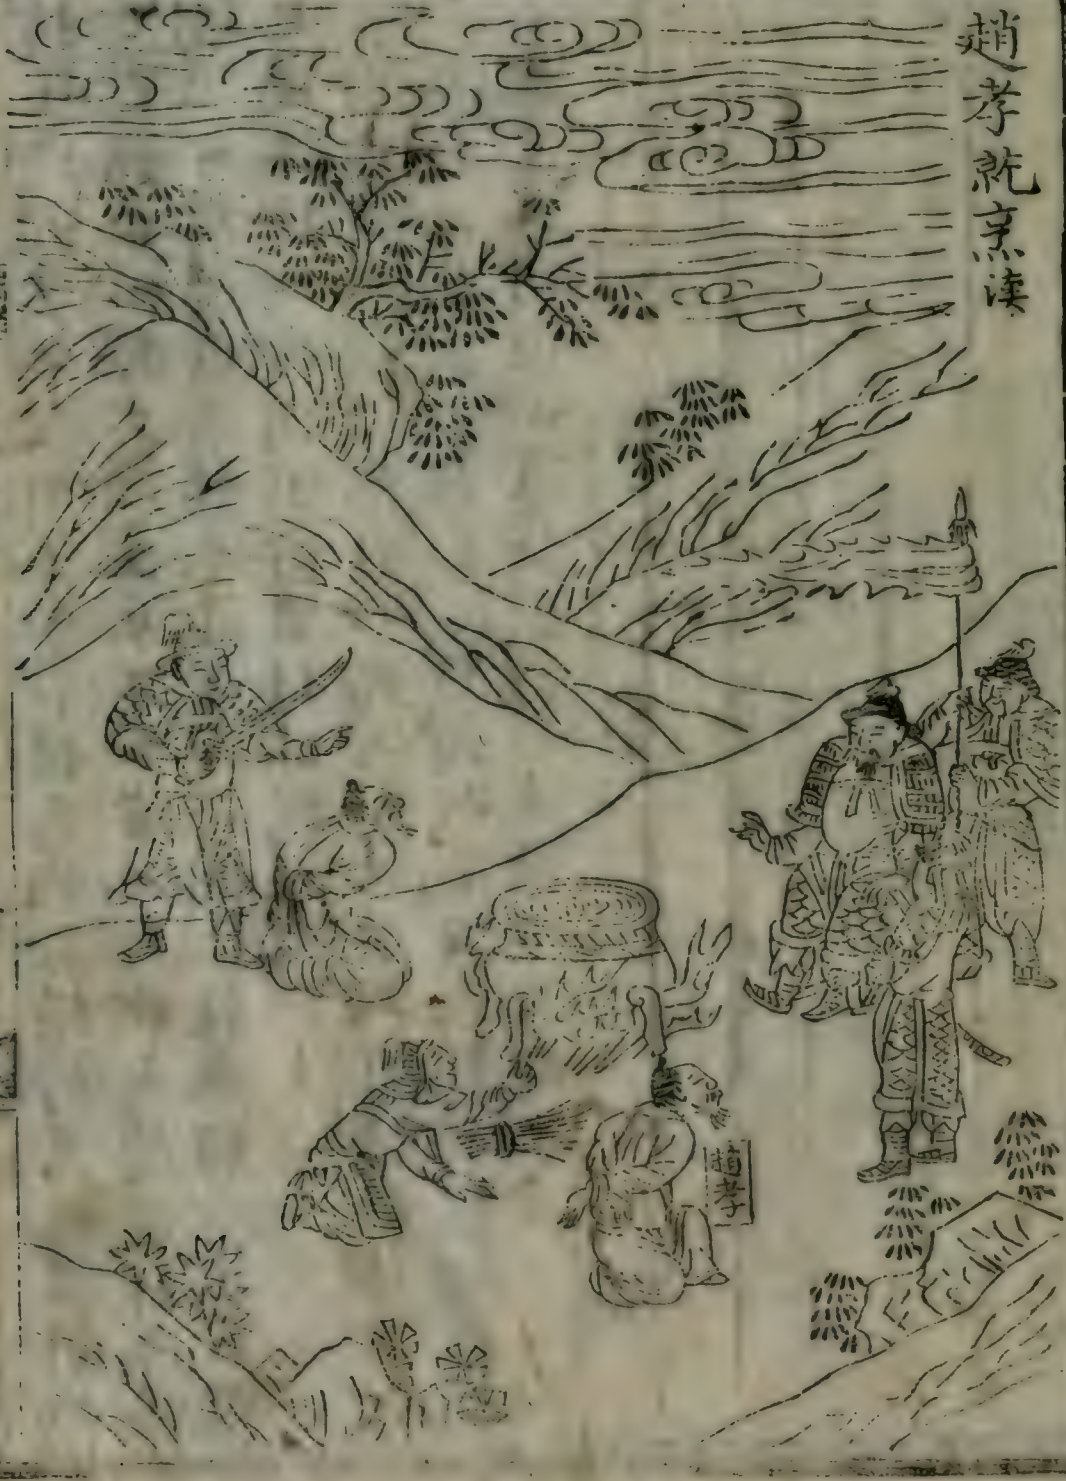 趙孝就烹漢
趙孝